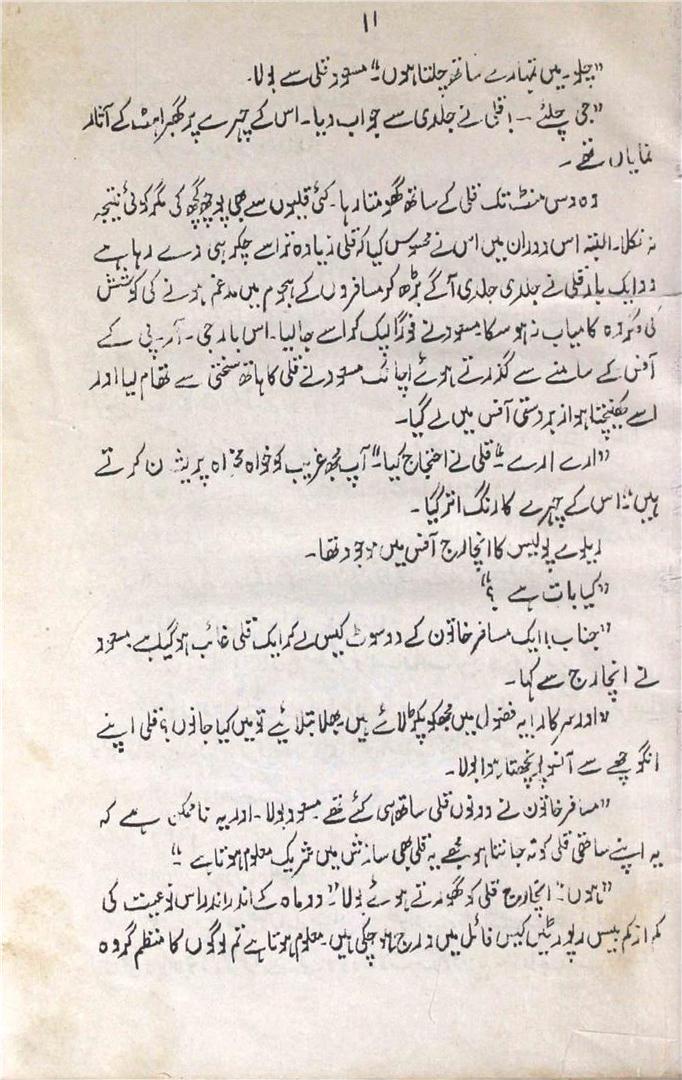 ۱۱
”چلو۔ میں تمہارے ساتھ چلتا ہوں“۔ مسعود قلی سے بولا۔
”جی چلئے ۔۔! قلی نے جلدی سے جواب دیا۔ اس کے چہرے پر گھبراہٹ کے آثار
نمایاں تھے ۔
وہ دس منٹ تک قلی کے ساتھ گھومتا رہا۔ کئی قلیوں سے بھی پوچھ گچھ کی مگر کوئی نتیجہ
نہ نکلا۔ البتہ اس دوران میں اس نے محسوس کیا کہ قلی زیادہ تر اسے چکر ہی دے رہا ہے
دو ایک بار قلی نے جلدی جلدی آگے بڑھ کر مسافروں کے ہجوم میں مدغم ہونے کی کوشش
کی مگر وہ کامیاب نہ ہو سکا۔ مسعود نے فوراً لپک کر اسے جا لیا۔ اس بار جی۔ آر۔ پی کے
آفس کے سامنے سے گذرتے ہوئے اچانک مسعود نے قلی کا ہاتھ سختی سے تھام لیا اور
اسے کھینچتا ہوا زبردستی آفس میں لے گیا۔
”ارے ارے“۔ قلی نے احتجاج کیا۔ ”آپ مجھ غریب کو خواہ مخواہ پریشان کرتے
ہیں“۔ اس کے چہرے کا رنگ اتر گیا ۔
ریلوے پولیس کا انچارج آفس میں موجود تھا۔
”کیا بات ہے ؟“
”جناب! ایک مسافر خاتون کے دو سوٹ کیس لے کر ایک قلی غائب ہو گیا ہے۔ مسعود
نے انچارج سے کہا۔
”اور سرکار! یہ فضول میں مجھ کو پکڑ لائے ہیں۔ بھلا بتلائیے تو میں کیا جانوں؟ قلی اپنے
انگوچھے سے آنسو پونچھتا ہوا بولا۔
”مسافر خاتون نے دونوں قلی ساتھ ہی کئے تھے۔ مسعود بولا ۔ اور یہ ناممکن ہے کہ
یہ اپنے ساتھی قلی کو نہ جانتا ہو۔ مجھے یہ قلی بھی سازش میں شریک معلوم ہوتا ہے ۔“
”ہوں“۔ انچارج قلی کو گھورتے ہوئے بولا۔ ”دو ماہ کے اندر اندر اس نوعیت کی
کم از کم بیس رپورٹیں کیس فائل میں درج ہو چکی ہیں۔ معلوم ہوتا ہے تم لوگوں کا منظم گروہ